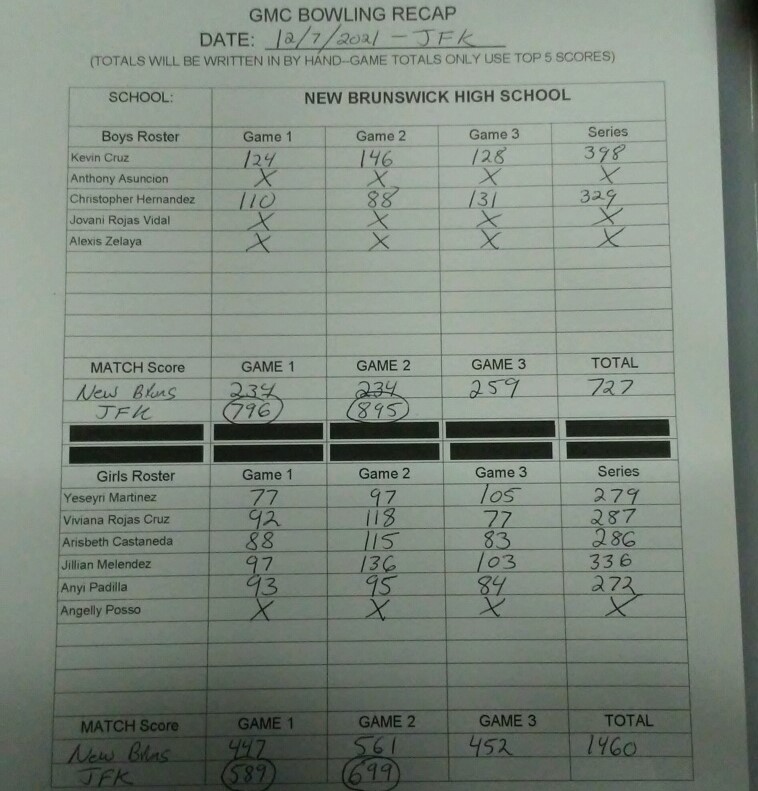 GMC BOWLING RECAP
DATE: 12/7/2021 - JFK
(TOTALS WILL BE WRITTEN IN BY HAND--GAME TOTALS ONLY USE TOP 5 SCORES)
SCHOOL: NEW BRUNSWICK HIGH SCHOOL
Boys Roster Game 1 Game 2 Game 3 Series
Kevin Cruz 124 146 128 398
Anthony Asuncion X X X X
Christopher Hernandez 110 88 131 329
Jovani Rojas Vidal X X X X
Alexis Zelaya X X X X
MATCH Score GAME 1 GAME 2 GAME 3 TOTAL
New Bruns 234 234 259 727
JFK 796 895
Girls Roster Game 1 Game 2 Game 3 Series
Yeseyri Martinez 77 97 105 279
Viviana Rojas Cruz 92 118 77 287
Arisbeth Castaneda 88 115 83 286
Jillian Melendez 97 136 103 336
Anyi Padilla 93 95 84 272
Angelly Posso X X X X
MATCH Score GAME 1 GAME 2 GAME 3 TOTAL
New Bruns 447 561 452 1460
JFK 589 699